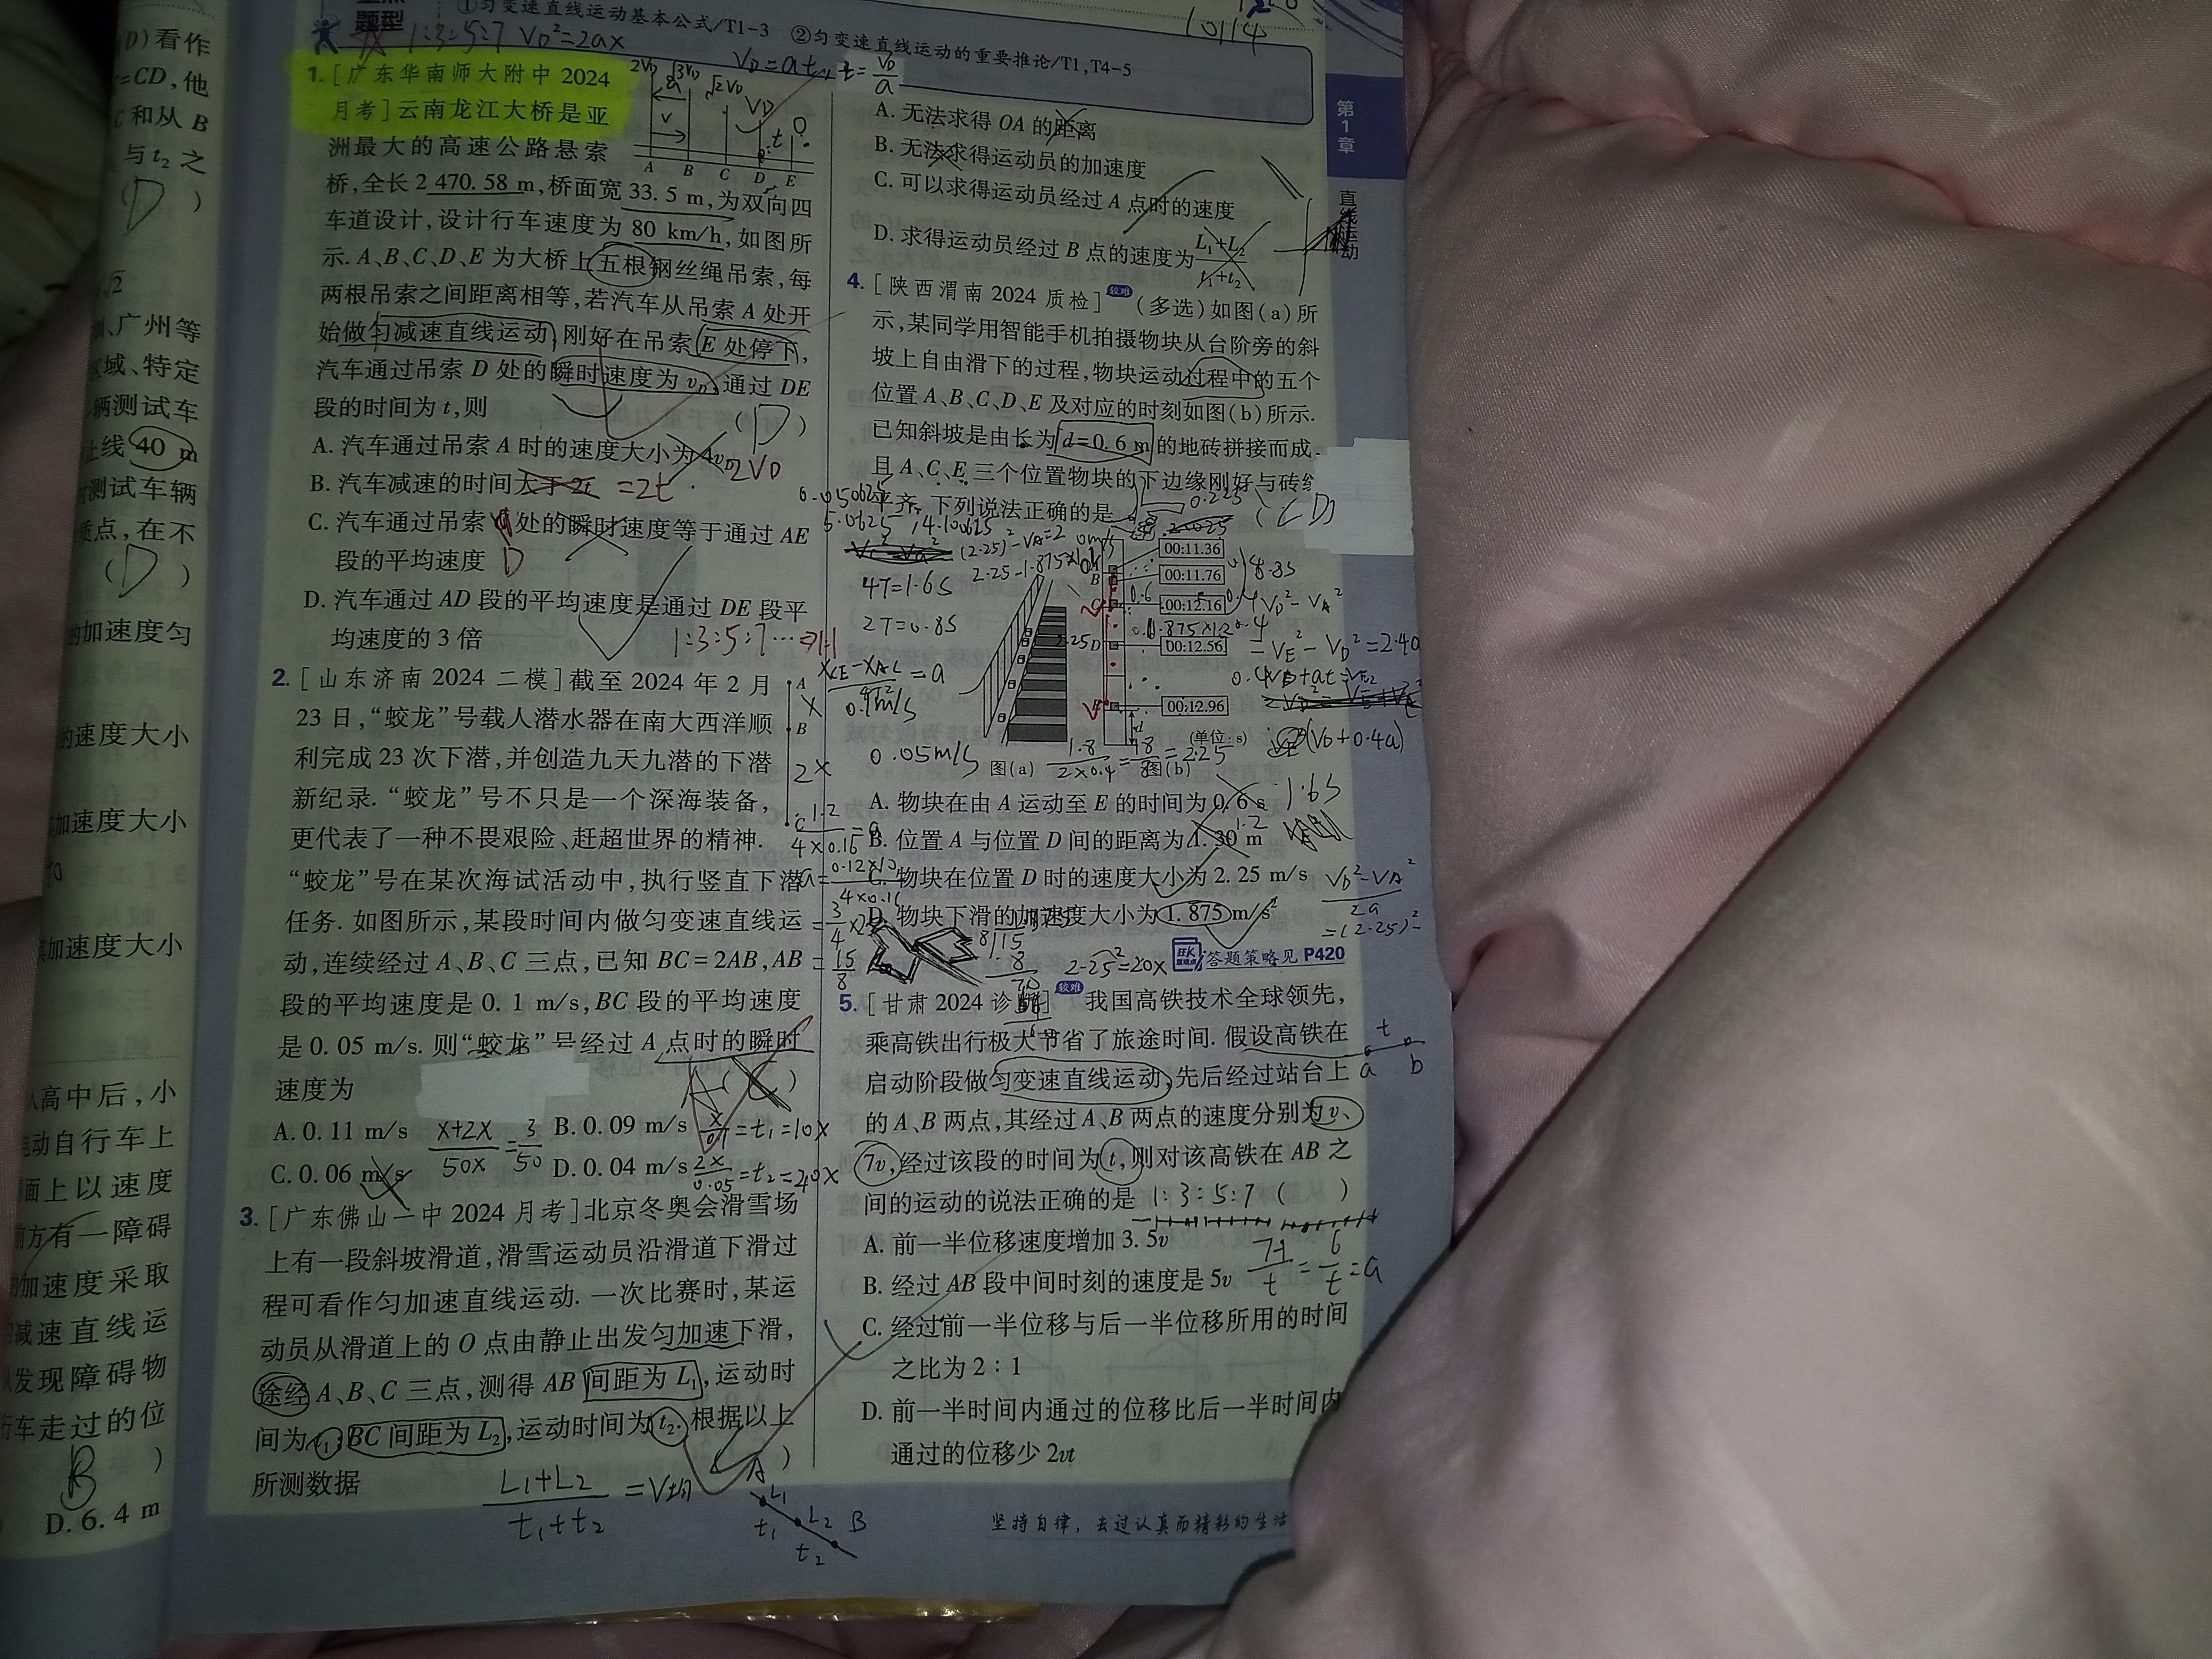 D)看作
=CD,他
C和从B
与t₂之
(D)
√2
广州等
区域、特定
辆测试车
止线 40 m
测试车辆
质点,在不
(D)
的加速度匀
的速度大小
加速度大小
加速度大小
入高中后,小
动自行车上
面上以速度
前方有一障碍
加速度采取
减速直线运
从发现障碍物
行车走过的位
B )
D. 6. 4 m
题型
①匀变速直线运动基本公式/T1-3 ②匀变速直线运动的重要推论/T1,T4-5
1:3:5:7 V_D²=2ax
V_D=at, t=V_D/a
10114
1. [广东华南师大附中 2024
月考]云南龙江大桥是亚
洲最大的高速公路悬索
桥,全长 2 470. 58 m,桥面宽 33. 5 m,为双向四
车道设计,设计行车速度为 80 km/h,如图所
示. A、B、C、D、E 为大桥上五根钢丝绳吊索,每
两根吊索之间距离相等,若汽车从吊索 A 处开
始做匀减速直线运动,刚好在吊索 E 处停下,
汽车通过吊索 D 处的瞬时速度为 v_D,通过 DE
段的时间为 t,则
(D)
A. 汽车通过吊索 A 时的速度大小为 4v_D 2V_D
B. 汽车减速的时间大于 2t =2t
C. 汽车通过吊索 处的瞬时速度等于通过 AE
段的平均速度 D
D. 汽车通过 AD 段的平均速度是通过 DE 段平
均速度的 3 倍
1:3:5:7…⇒1:1
2V_D √3V_D √2V_D V_D O
a
v
t
A B C D E
2. [山东济南 2024 二模]截至 2024 年 2 月
23 日,“蛟龙”号载人潜水器在南大西洋顺
利完成 23 次下潜,并创造九天九潜的下潜
新纪录. “蛟龙”号不只是一个深海装备,
更代表了一种不畏艰险、赶超世界的精神.
“蛟龙”号在某次海试活动中,执行竖直下潜
任务. 如图所示,某段时间内做匀变速直线运
动,连续经过 A、B、C 三点,已知 BC=2AB,AB
段的平均速度是 0. 1 m/s,BC 段的平均速度
是 0. 05 m/s. 则“蛟龙”号经过 A 点时的瞬时
速度为 ( )
A. 0. 11 m/s B. 0. 09 m/s
C. 0. 06 m/s D. 0. 04 m/s
A
X
B
2X
C
(X+2X)/50X=3/50
X/0.1=t₁=10X
2X/0.05=t₂=20X
3. [广东佛山一中 2024 月考]北京冬奥会滑雪场
上有一段斜坡滑道,滑雪运动员沿滑道下滑过
程可看作匀加速直线运动. 一次比赛时,某运
动员从滑道上的 O 点由静止出发匀加速下滑,
途经 A、B、C 三点,测得 AB 间距为 L₁,运动时
间为 t₁;BC 间距为 L₂,运动时间为 t₂. 根据以上
所测数据 )
(L₁+L₂)/(t₁+t₂) =V均
A L₁ t₁ L₂ B t₂
A. 无法求得 OA 的距离
B. 无法求得运动员的加速度
C. 可以求得运动员经过 A 点时的速度
D. 求得运动员经过 B 点的速度为(L₁+L₂)/(t₁+t₂)
4. [陕西渭南 2024 质检]较难(多选)如图(a)所
示,某同学用智能手机拍摄物块从台阶旁的斜
坡上自由滑下的过程,物块运动过程中的五个
位置 A、B、C、D、E 及对应的时刻如图(b)所示.
已知斜坡是由长为 d=0. 6 m 的地砖拼接而成,
且 A、C、E 三个位置物块的下边缘刚好与砖缝
平齐. 下列说法正确的是 (CD)
5.0625 14.100625
4T=1.6S
2T=0.8S
0.05m/S
00:11.36
00:11.76
00:12.16
00:12.56
00:12.96
B
C
D
d
(单位:s)
图(a) 图(b)
1.8/(2×0.4)=2.25
A. 物块在由 A 运动至 E 的时间为 0. 6 s 1.6S
B. 位置 A 与位置 D 间的距离为 1. 30 m
C. 物块在位置 D 时的速度大小为 2. 25 m/s
D. 物块下滑的加速度大小为 1. 875 m/s²
答题策略见 P420
5. [甘肃 2024 诊断]较难 我国高铁技术全球领先,
乘高铁出行极大节省了旅途时间. 假设高铁在
启动阶段做匀变速直线运动,先后经过站台上
的 A、B 两点,其经过 A、B 两点的速度分别为 v、
7v,经过该段的时间为 t,则对该高铁在 AB 之
间的运动的说法正确的是 1:3:5:7 ( )
A. 前一半位移速度增加 3. 5v
B. 经过 AB 段中间时刻的速度是 5v
C. 经过前一半位移与后一半位移所用的时间
之比为 2∶1
D. 前一半时间内通过的位移比后一半时间内
通过的位移少 2vt
t
a b
(7-1)/t=6/t=a
第1章
直线运动
坚持自律,去过认真而精彩的生活